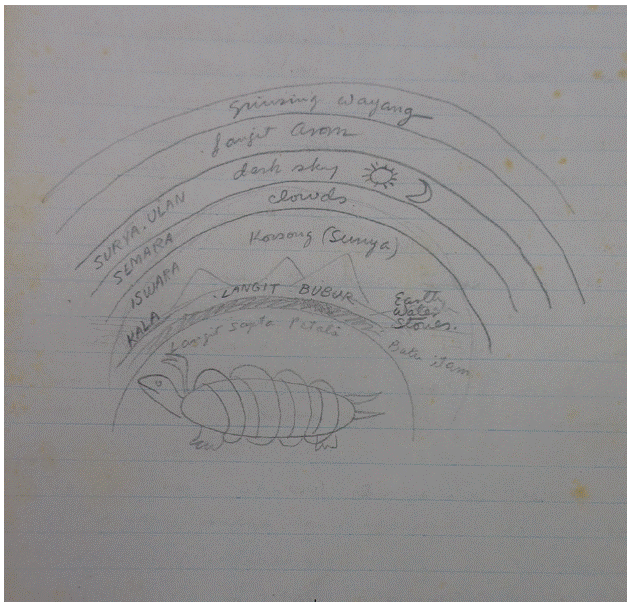 grinsing wayang
langit
dark sky
clouds.
SURYA. ULAN
SEMARA
Kosong (Sunya)
ISWARA
LANGIT BUBUR
Earth
water
stones.
KALA
Langit Sapta Petala
Batu itam